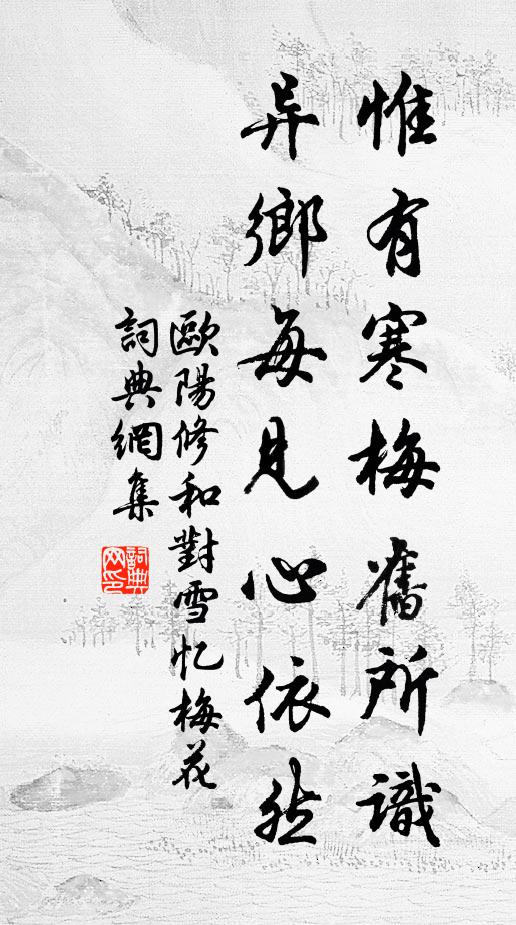 惟有寒梅舊所識
异鄉每見心依然
歐陽修和對雪忆梅花
詞典網集
詞典网印